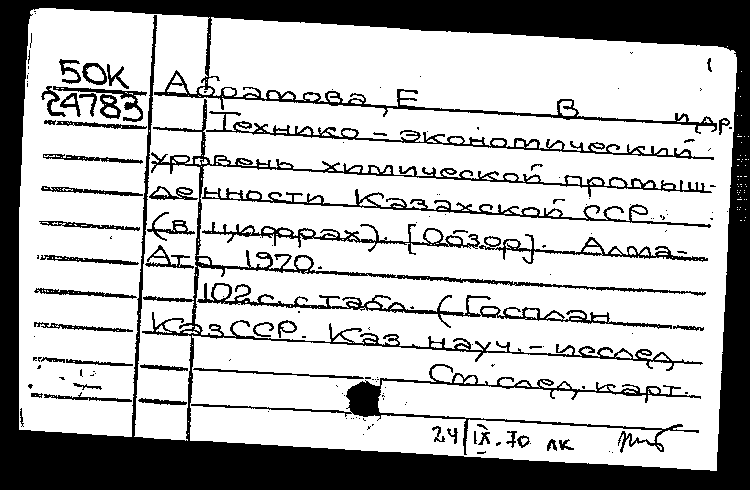 1
50К Абратова, Е В и др.
24783
Технико-экономический
уровень химической промыш-
ленности Казахской ССР.
(в цифрах). [Обзор]. Алма-
Ата, 1970.
102с. с табл. (Госплан
КазССР. Каз. науч.-исслед.
См. след. карт.
24/IX.70 лк